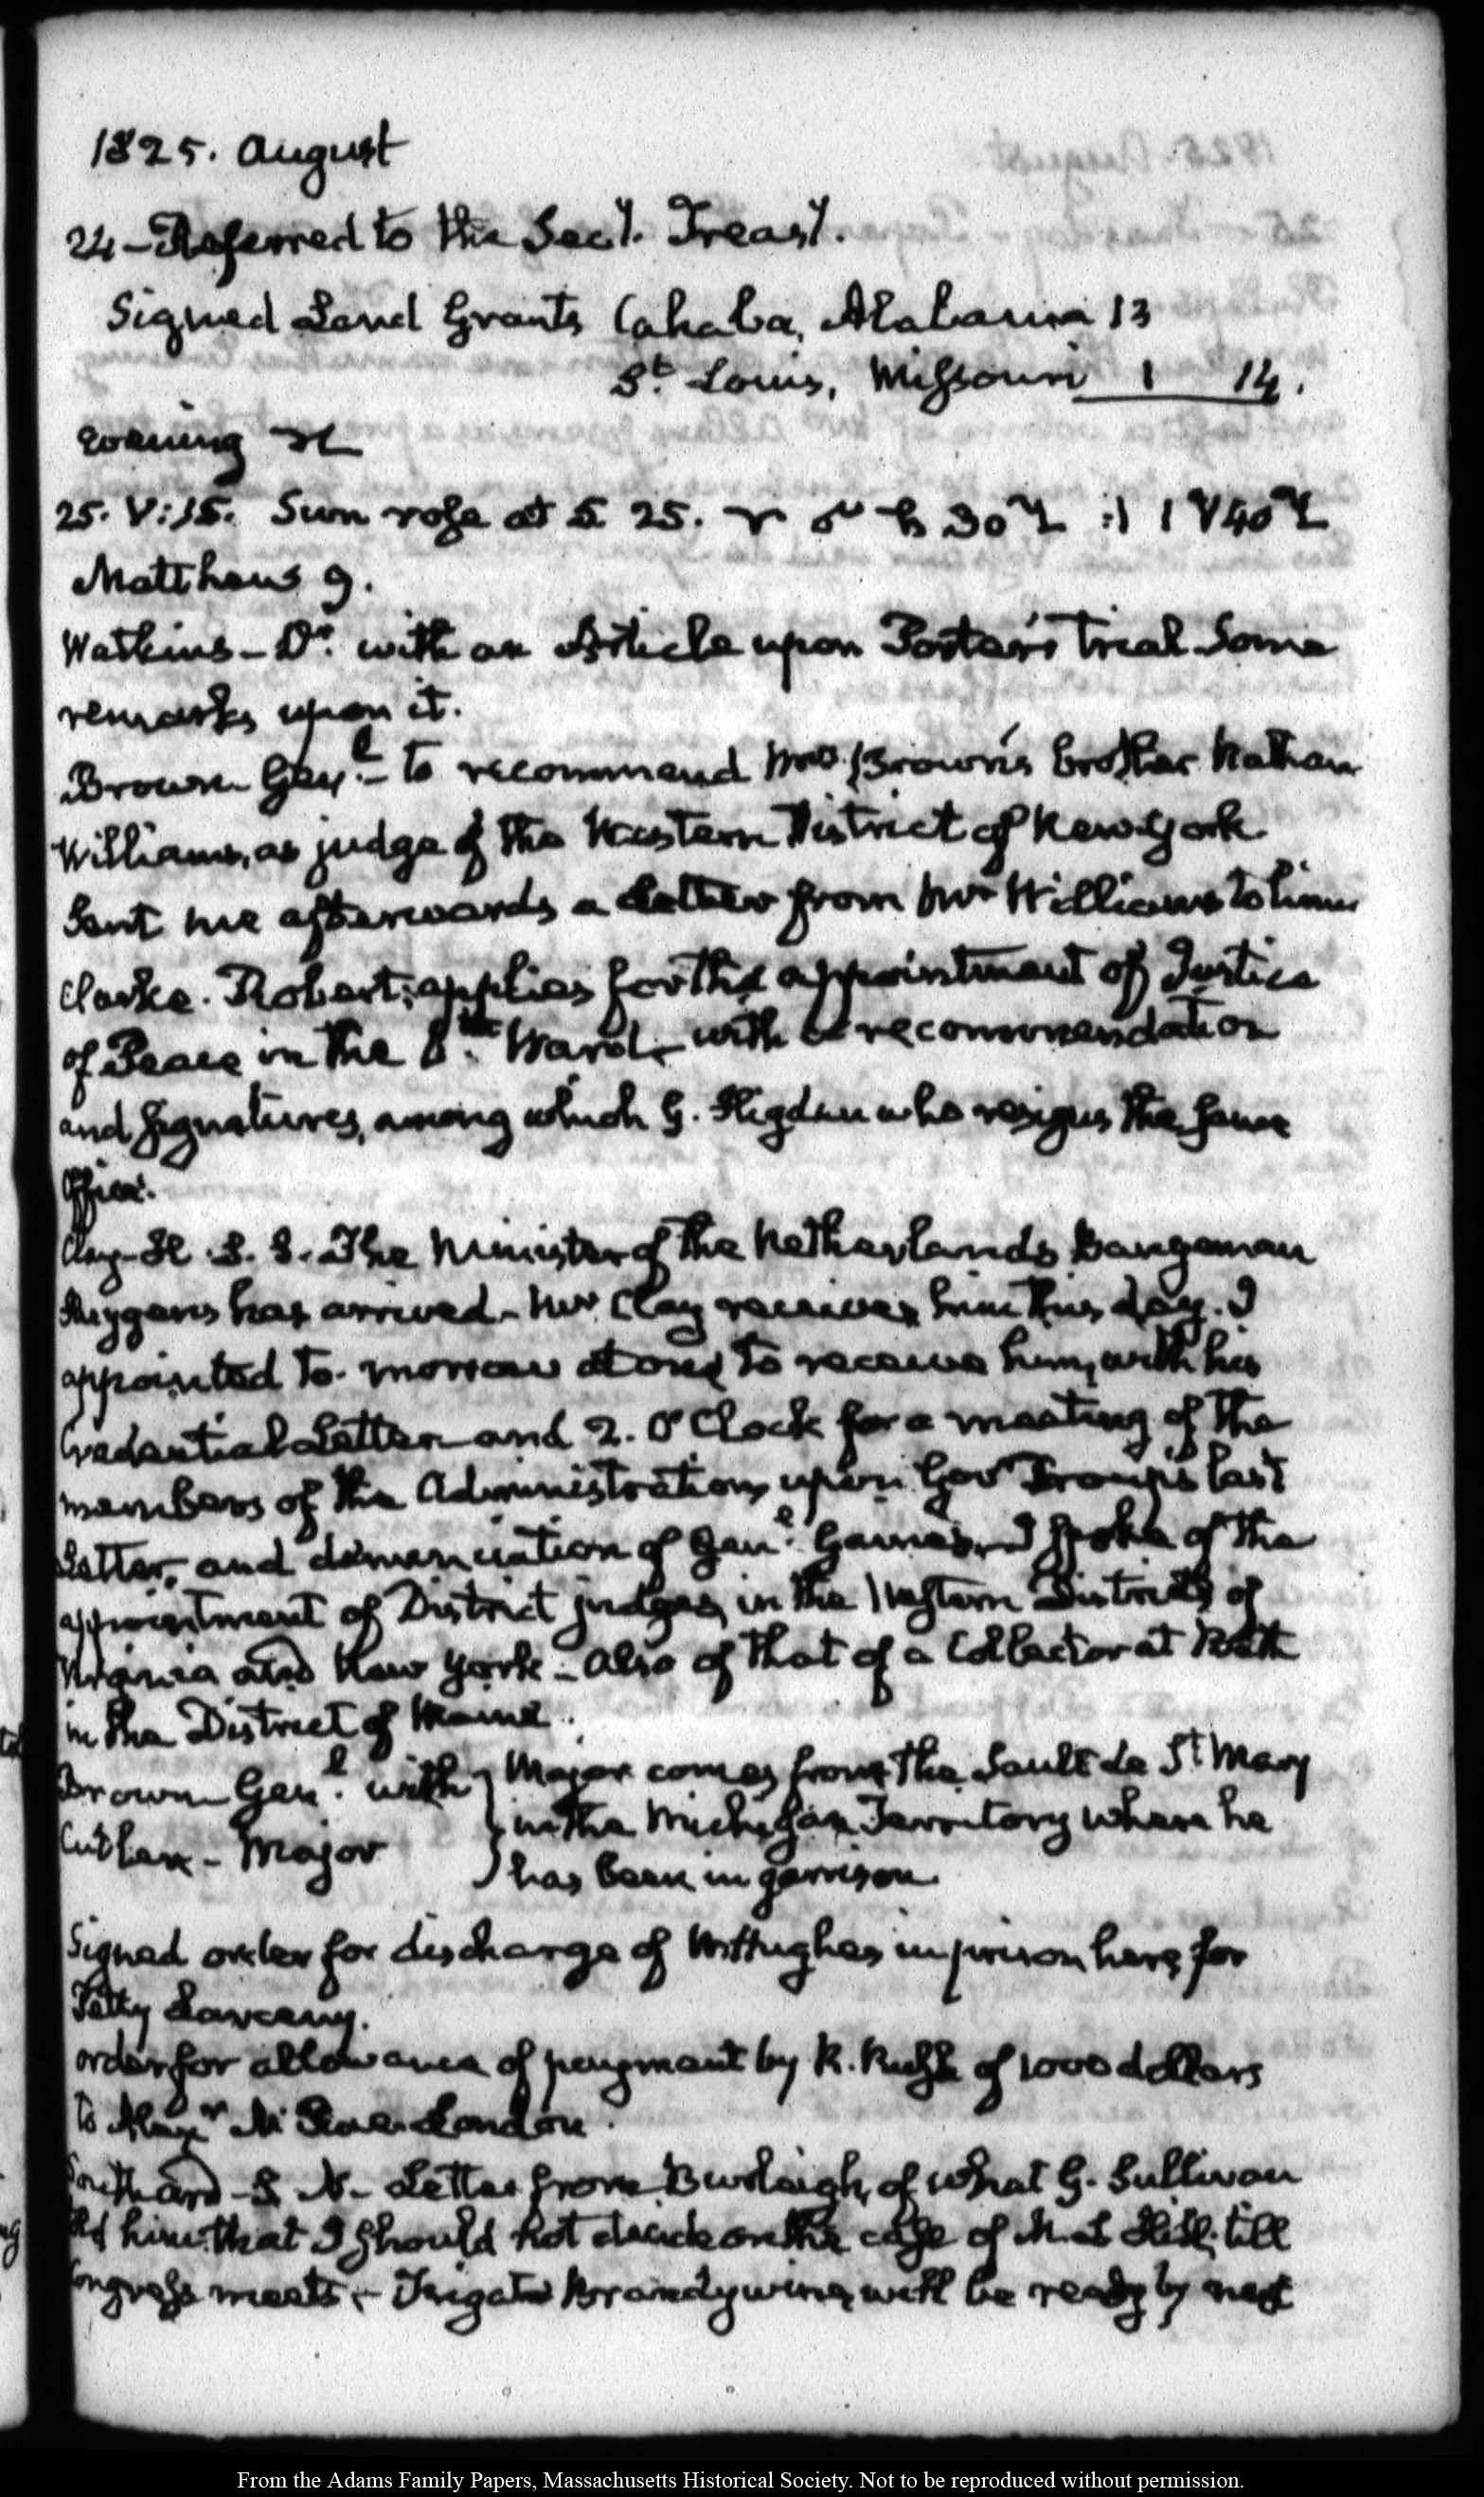 1825. August
24 - Referred to the Secy. Treasy.
Signed Land Grants Cahaba, Alabama 13
St. Louis, Missouri 1 14.
Evening
25. V:15. Sun rose at 5. 25.
Matthew 9.
Watkins - Dr. with an Article upon Porter's trial Some
remarks upon it.
Brown Genl. - to recommend Mrs Brown's brother Nathan
Williams, as judge of the Western District of New-York
Sent me afterwards a Letter from Mr Williams to him
Clarke. Robert, applies for the appointment of Justice
of Peace in the Ward, with a recommendation
and signatures, among which G. who resigns the same
Office.
Clay - H S. S. The Minister of the Netherlands Bangeman
Huygens has arrived - Mr Clay receives him this day. I
appointed to-morrow at one to receive him, with his
Credential Letter and 2. O'Clock for a meeting of the
members of the Administration, upon Govr Troup's last
Letter, and denunciation of Genl. Gaines. I spoke of the
appointment of District judges in the Western Districts of
Virginia and New York - also of that of a Collector at Bath
in the District of Maine.
Brown Genl. with Major comes from the Sault de St Mary
in the Michigan Territory where he
Cutler - Major has been in garrison
Signed order for discharge of W Hughes in prison here, for
Petty Larceny.
order for allowance of payment by R. Rush of 1000 dollars
to London.
Southard - S. N - Letter from Burleigh, of what G. Sullivan
told him that I should not decide on the case of till
Congress meets, - Frigate Brandywine, will be ready by next
From the Adams Family Papers, Massachusetts Historical Society. Not to be reproduced without permission.